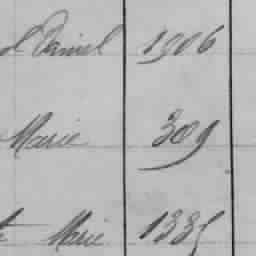 Daniel 1906
Marie 309
Marie 1335